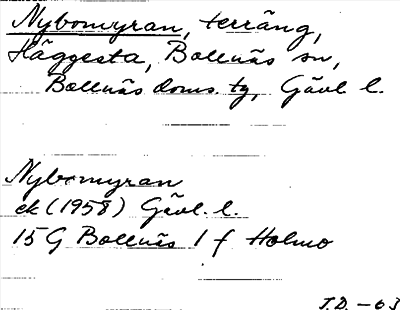 Nybomyran, terräng,
Häggesta, Bollnäs sn,
Bollnäs doms. tg, Gävl. l.
Nybomyran
ek (1958) Gävl. l.
15 G Bollnäs 1 f Holmo
J.D. - 63